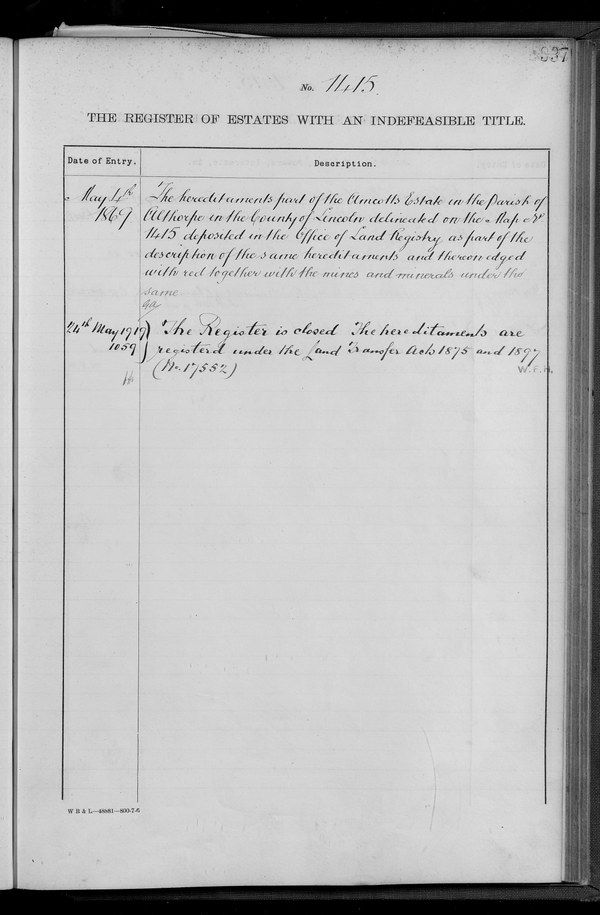 937
No. 1415
THE REGISTER OF ESTATES WITH AN INDEFEASIBLE TITLE.
Date of Entry.
Description.
May 4th
1869
The hereditaments part of the Amcotts Estate in the Parish of
Althorpe in the County of Lincoln delineated on the Map No.
1415 deposited in the Office of Land Registry as part of the
description of the same hereditaments and thereon edged
with red together with the mines and minerals under the
same
24th May 1919
1059
The Register is closed The hereditaments are
registered under the Land Transfer Acts 1875 and 1897
(No. 17552)
W.F.H.
W B & L—48881—800-7-6